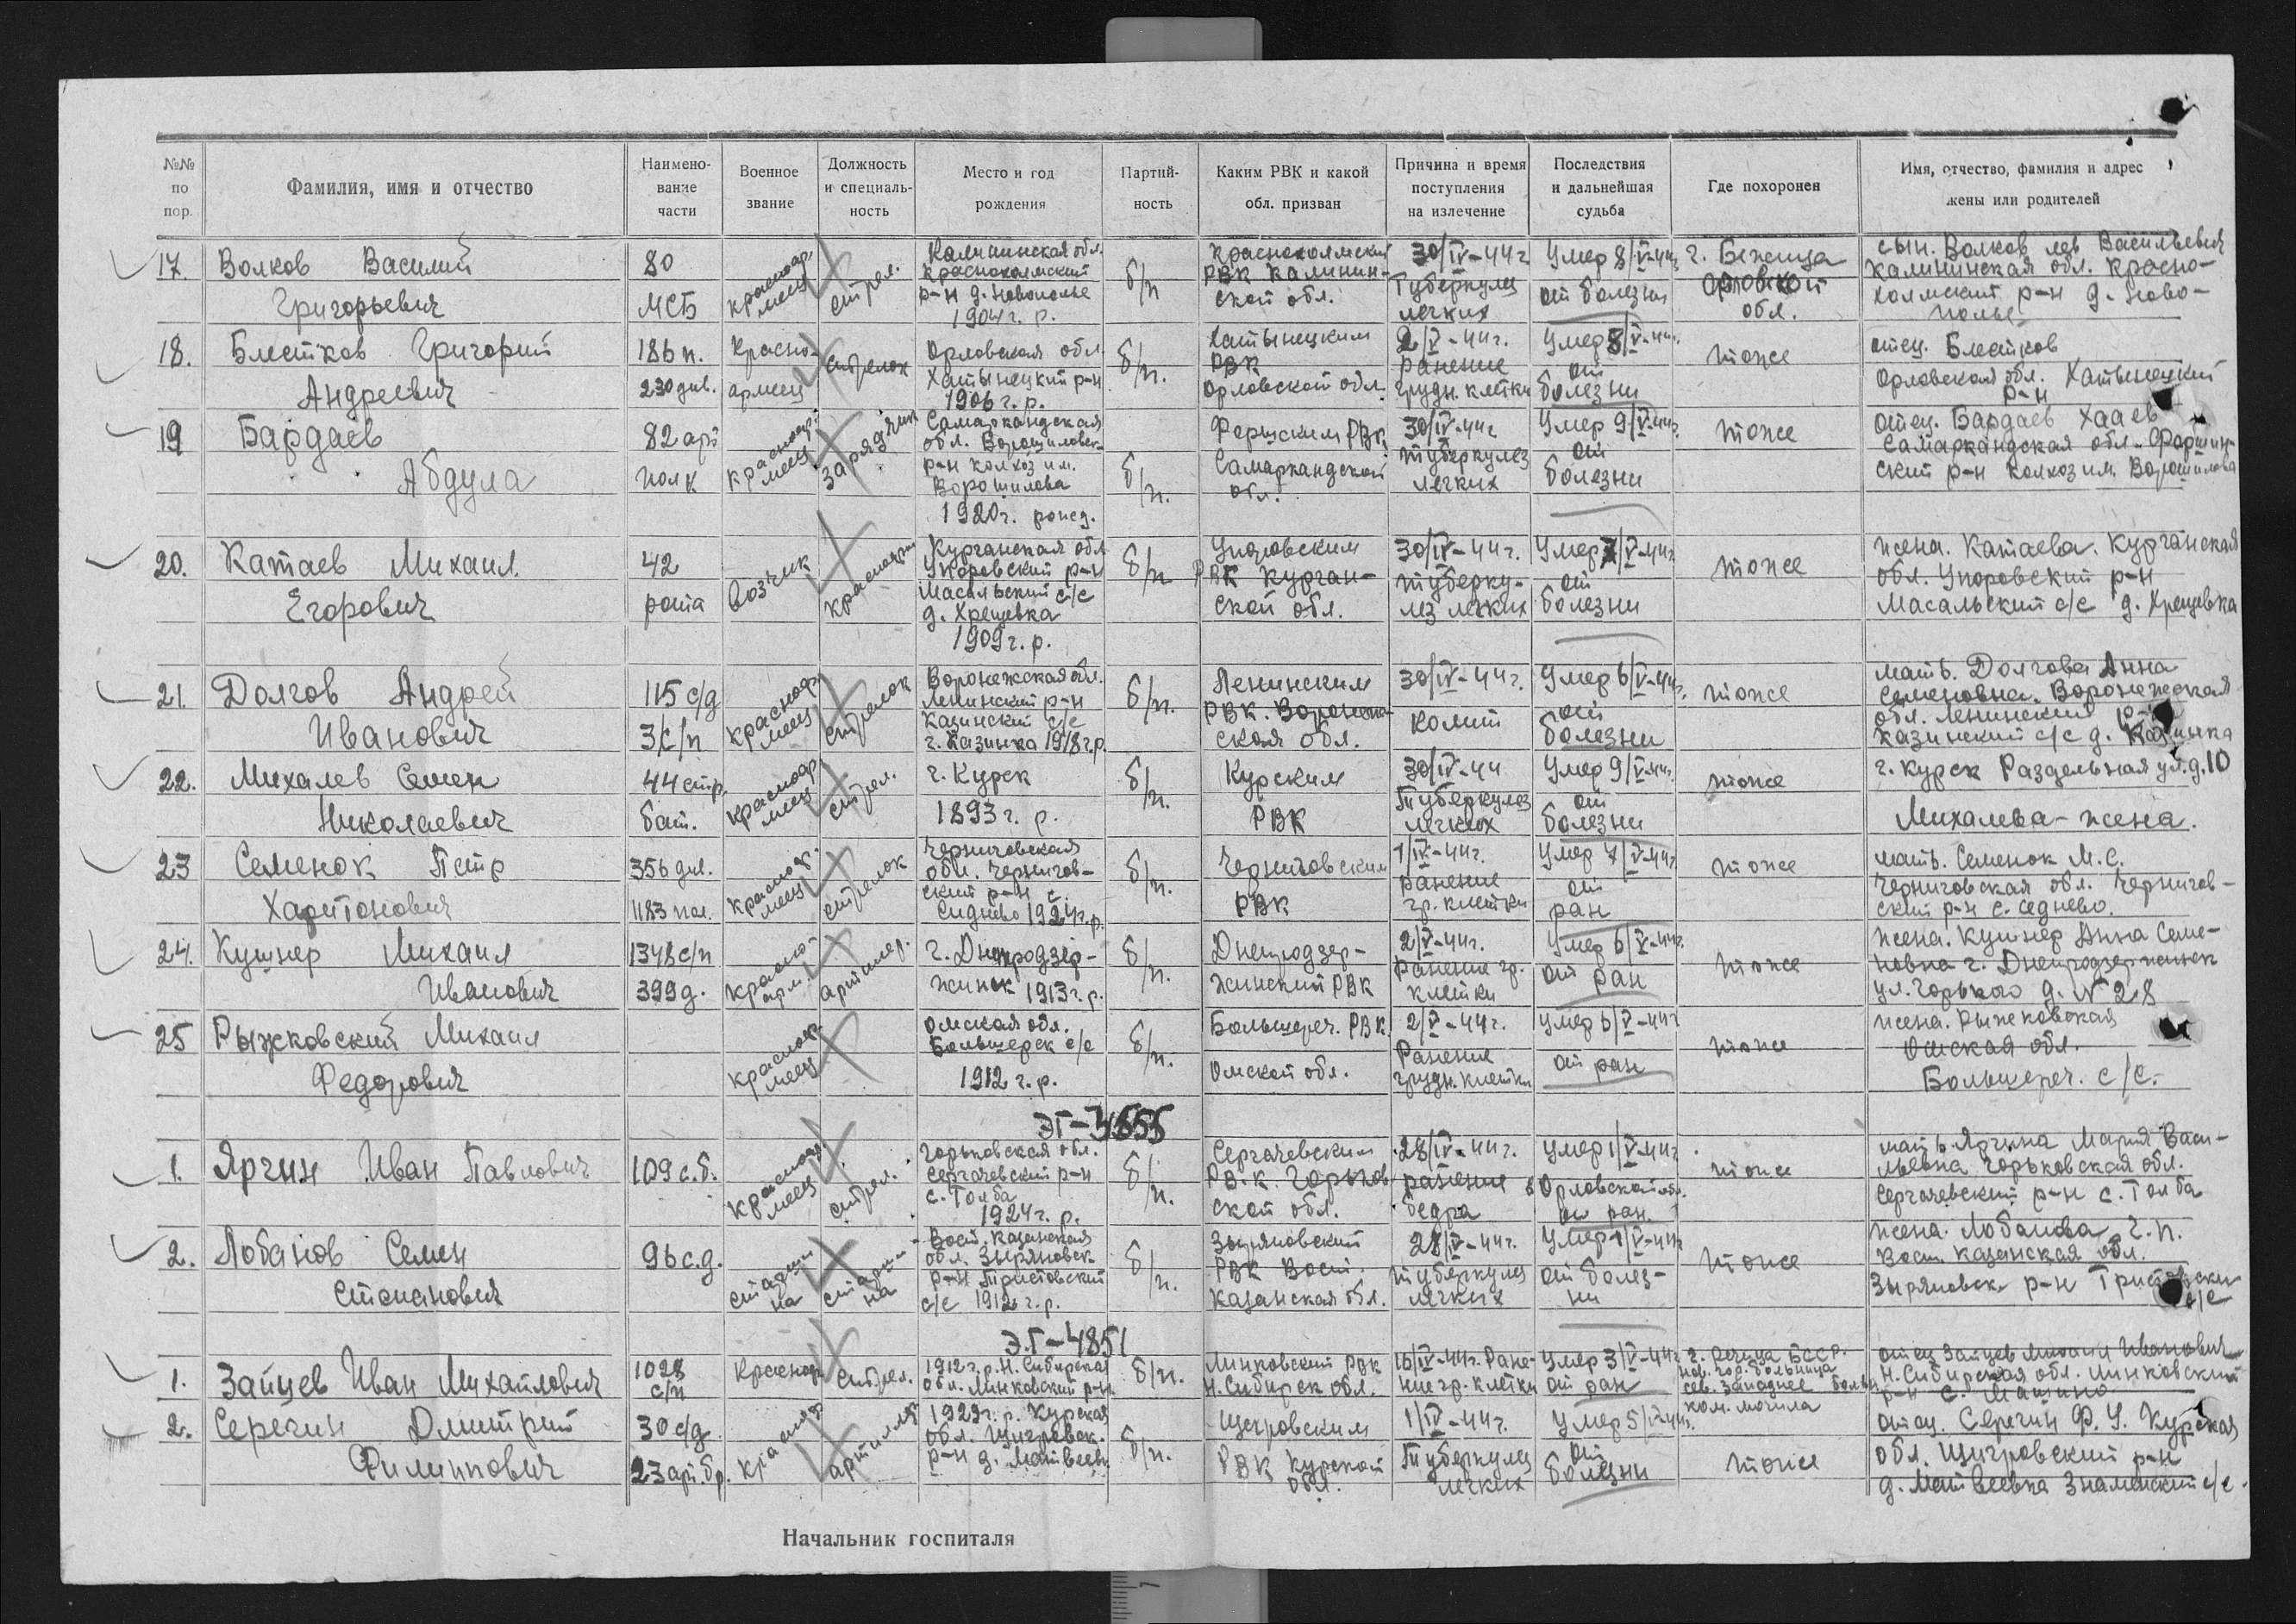 №№ по пор.
Фамилия, имя и отчество
Наимено-вание части
Военное звание
Должность и специаль-ность
Место и год рождения
Партий-ность
Каким РВК и какой обл. призван
Причина и время поступления на излечение
Последствия и дальнейшая судьба
Где похоронен
Имя, отчество, фамилия и адрес жены или родителей
17. Волков Василий Григорьевич
80 МСБ
красноар меец
стрел.
Калининская обл. Краснохолмский р-н д. Новополье 1904 г. р.
б/п
Краснохолмский РВК Калинин-ской обл.
30/IV-44 г Туберкулез легких
Умер 8/V-44г от болезни
г. Бежица Орловской обл.
сын. Волков Лев Васильевич Калининская обл. Красно-холмский р-н д. Ново-полье
18. Блетков Григорий Андреевич
186 п. 230 див.
Красно-армеец
стрелок
Орловская обл Хатынецкий р-н 1906 г. р.
б/п.
Хатынецким РВК Орловской обл.
2/V-44г. ранение грудн. клетки
Умер 8/V-44г. от болезни
тоже
отец. Блетков Орловская обл. Хатынецкий р-н
19 Бардаев Абдула
82 арт полк
красноар. меец
зарядчик
Самаркандская обл. Ворошиловск- р-н колхоз им. Ворошилова 1920 г. рожд.
б/п.
РВК Самаркандской обл.
30/IV-44г туберкулез легких
Умер 9/V-44г. от болезни
тоже
отец. Бардаев Хаев Самаркандская обл. ский р-н колхоз им. Ворошилова
20. Катаев Михаил Егорович
42 рота
возчик
Курганская обл Упоровский р-н Масальский с/с д. Хрещевка 1909 г. р.
б/п
Упоровским РВК Курган-ской обл.
30/IV-44г. туберку-лез легких
Умер 7/V-44г от болезни
тоже
жена. Катаева. Курганская обл. Упоровский р-н Масальский с/с д. Хрещевка
21. Долгов Андрей Иванович
115 с/д 3/с/п
красноар меец
стрелок
Воронежская обл. Ленинский р-н Казинский с/с г. Казинка 1918 г.р.
б/п.
Ленинским РВК. Воронеж-ская обл.
30/IV-44г. колит
Умер 6/V-44г. от болезни
тоже
мать. Долгова Анна Семеновна. Воронежская обл. Ленинский р-н Казинский с/с д. Казинка
22. Михалев Семен Николаевич
44 стр. бат.
красноар меец
стрел.
г. Курск 1893 г. р.
б/п.
Курским РВК
30/IV-44 Туберкулез легких
Умер 9/V-44г. от болезни
тоже
г. Курск Раздельная ул. д. 10 Михалева - жена.
23 Семенок Петр Харитонович
356 див. 1183 пол.
красноар. меец
стрелок
Черниговская обл. Чернигов-ский р-н с. Сиднево 1924 г. р.
б/п.
Черниговским РВК
1/IV-44г. ранение гр. клетки
Умер 7/V-44г от ран
тоже
мать. Семенок М. С. Черниговская обл. Чернигов-ский р-н с. Седнево.
24. Кушнер Михаил Иванович
1348 с/п 399 д.
красно-арм.
артилер.
г. Днепродзер-жинск 1913 г. р.
б/п.
Днепродзер-жинский РВК
2/V-44г. ранение гр. клетки
Умер 6/V-44г. от ран
тоже
жена. Кушнер Анна Семе-новна г. Днепродзержинск ул. Горького д. № 28
25 Рыжковский Михаил Федорович
красноар. меец
Омская обл. Большерек с/с 1912 г. р.
б/п.
Большереч. РВК Омской обл.
2/V-44г. Ранение грудн. клетки
Умер 6/V-44г от ран
тоже
жена. Рыжковская Омская обл. Большереч. с/с.
ЭГ-3655
1. Ярчин Иван Павлович
109 с.б.
красноар. меец
стрел.
Горьковская обл. Сергачевский р-н с. Толба 1924 г. р.
б/п.
Сергачевским Р.В.К. Горьков ской обл.
28/IV-44г. ранение бедра
Умер 1/V-44г Орловской обл. от ран.
тоже
мать Ярчина Мария Васи-льевна Горьковская обл. Сергачевский р-н с. Толба
2. Лобанов Семен Степанович
96 с.д.
старши на
старши-на
Вост. Казанская обл. Зыряновск- р-н с/с 1912 г. р.
б/п.
Зыряновский РВК Вост. Казанская обл.
28/IV-44г. туберкулез легких
Умер 1/V-44г от болез-ни
тоже
жена. Лобанова г. п. Вост. Казанская обл. Зыряновск. р-н с/с
Э.Г-4851
1. Зайцев Иван Михайлович
1028 с/п
Красноар
Стрел.
1912 г. р. Н. Сибирская обл. Минковский р-н
б/п.
Минковский РВК Н. Сибирск обл.
16/IV-44г. Ране-ние гр. клетки
Умер 3/V-44г от ран
г. Речица БССР. гор. больница сев. западнее больн ком. могила
отец Зайцев Михаил Иванович Н. Сибирская обл. Минковский р-н с.
2. Серегин Дмитрий Филиппович
30 с/д 23 арт. бр.
красноар
артиллер
1923 г. р. Курская обл. Щигровск. р-н д. Матвеевк
б/п.
Щигровским РВК Курской обл.
1/IV-44г. Туберкулез легких
Умер 5/V-44г. от болезни
тоже
отец. Серегин Ф. У. Курская обл. Щигровский р-н д. Матвеевка Знаменский с/с.
Начальник госпиталя